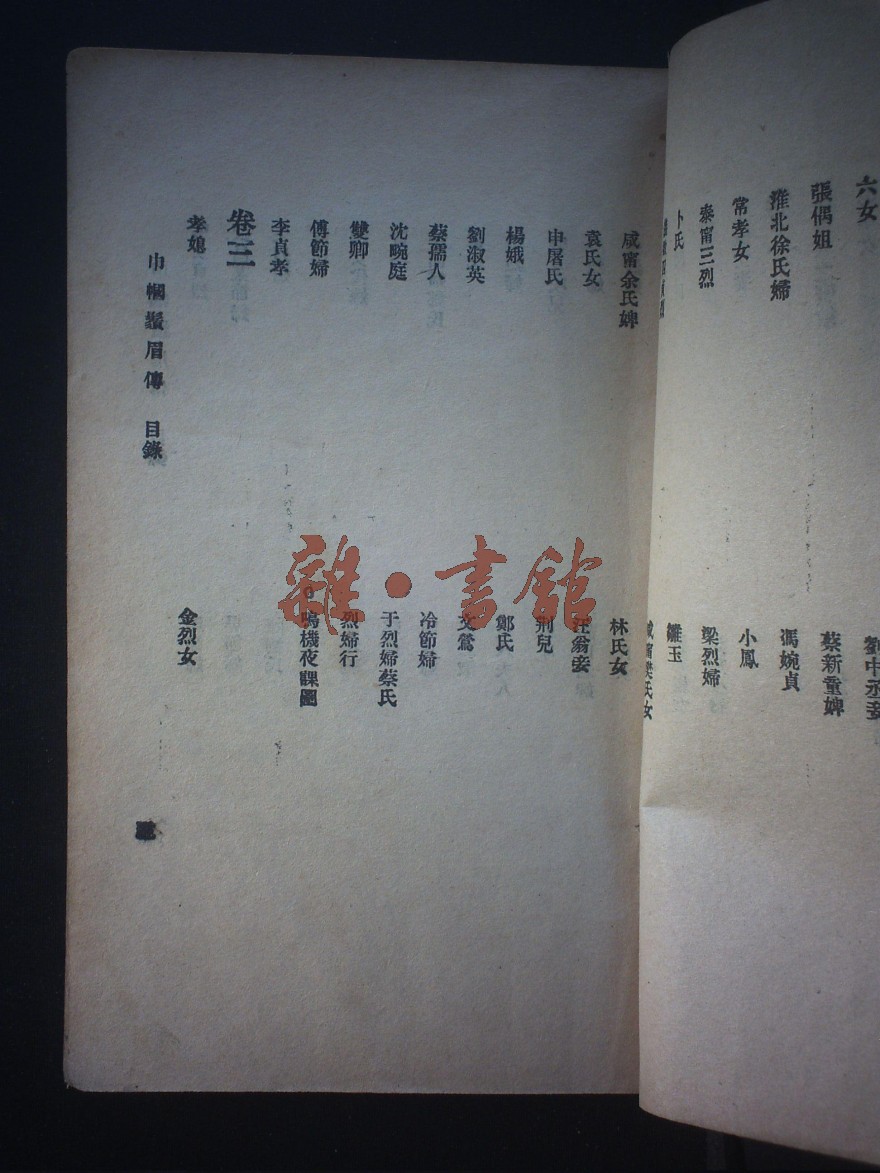 六女
張偶姐
淮北徐氏婦
常孝女
泰甯三烈
卜氏
蔡新童婢
馮婉貞
小鳳
梁烈婦
雛玉
咸甯樊氏女
咸甯余氏婢
袁氏女
申屠氏
楊娥
劉淑英
蔡孺人
沈畹庭
雙卿
傅節婦
李貞孝
林氏女
汪翁妾
荆兒
鄭氏
文鶯
冷節婦
于烈婦蔡氏
烈婦行
鳴機夜課圖
卷三
孝媳
金烈女
巾幗鬚眉傳 目錄
雜·書館